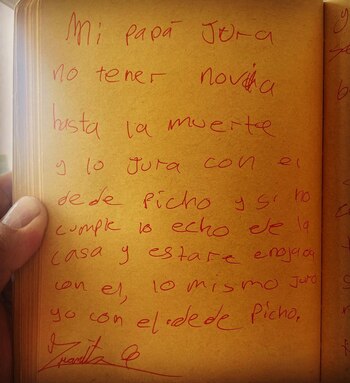 Mi papá Jura
no tener novia
hasta la muerte
y lo Jura con el
dede Picho y si no
cumple lo echo de la
casa y estare enojada
con el, lo mismo Juro
yo con el dede Picho.